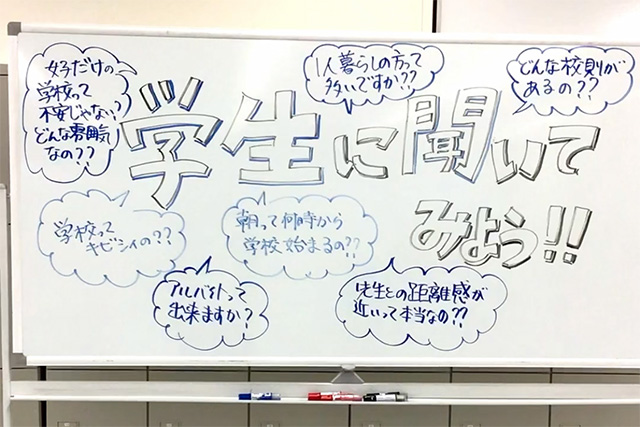 女子だけの
学校って
不安じゃない?
どんな雰囲気
なの??
1人暮らしの方って
多いですか??
どんな校則が
あるの??
学生に聞いて
みよう!!
学校って
キビシイの??
朝って何時から
学校始まるの??
アルバイトって
出来ますか?
先生との距離感が
近いって本当なの??